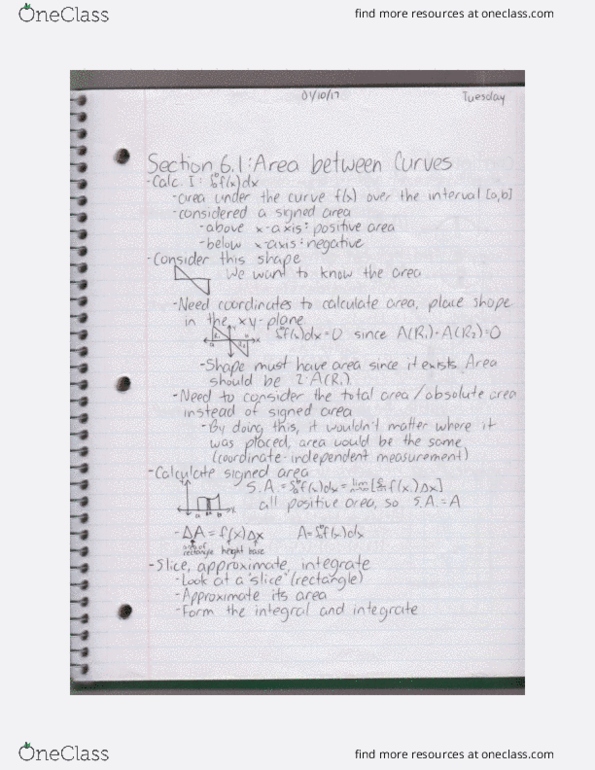 OneClass
find more resources at oneclass.com
01/10/17 Tuesday
Section 6.1: Area between Curves
-Calc. I: ∫ₐᵇf(x)dx
-area under the curve f(x) over the interval [a,b]
-considered a signed area
-above x-axis: positive area
-below x-axis: negative
-Consider this shape
We want to know the area
-Need coordinates to calculate area, place shape
in the xy-plane
∫ₐᵇf(x)dx=0 since A(R₁)-A(R₂)=0
-Shape must have area since it exists. Area
should be 2·A(R₁).
-Need to consider the total area/absolute area
instead of signed area
-By doing this, it wouldn't matter where it
was placed, area would be the same
(coordinate-independent measurement)
-Calculate signed area
S.A.=∫ₐᵇf(x)dx=lim[Σf(x)Δx]
all positive area, so S.A.=A
-ΔA=f(x)Δx A=∫ₐᵇf(x)dx
area of
rectangle height base
-Slice, approximate, integrate
-Look at a "slice" (rectangle)
-Approximate its area
-Form the integral and integrate
OneClass
find more resources at oneclass.com